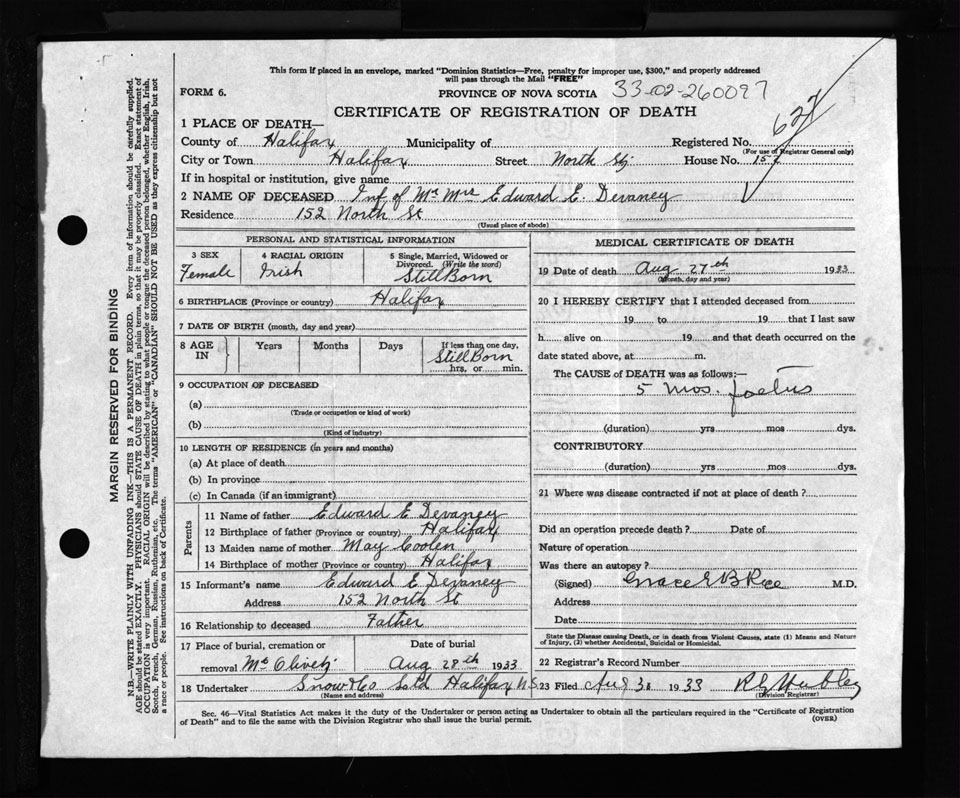 This form if placed in an envelope, marked "Dominion Statistics—Free, penalty for improper use, $300," and properly addressed
will pass through the Mail "FREE"
FORM 6.
PROVINCE OF NOVA SCOTIA 33-02-260097
CERTIFICATE OF REGISTRATION OF DEATH
1 PLACE OF DEATH—
County of Halifax Municipality of Registered No. 627
(For use of Registrar General only)
City or Town Halifax Street North St. House No. 152
If in hospital or institution, give name
2 NAME OF DECEASED Inf of Mr Mrs Edward E. Devaney
Residence 152 North St
(Usual place of abode)
PERSONAL AND STATISTICAL INFORMATION
3 SEX
Female
4 RACIAL ORIGIN
Irish
5 Single, Married, Widowed or
Divorced. (Write the word)
StillBorn
6 BIRTHPLACE (Province or country) Halifax
7 DATE OF BIRTH (month, day and year)
8 AGE
IN
Years Months Days
If less than one day,
StillBorn
hrs, or min.
9 OCCUPATION OF DECEASED
(a)
(Trade or occupation or kind of work)
(b)
(Kind of industry)
10 LENGTH OF RESIDENCE (in years and months)
(a) At place of death
(b) In province
(c) In Canada (if an immigrant)
Parents
11 Name of father Edward E Devaney
12 Birthplace of father (Province or country) Halifax
13 Maiden name of mother May Coolen
14 Birthplace of mother (Province or country) Halifax
15 Informant's name Edward E. Devaney
Address 152 North St
16 Relationship to deceased Father
17 Place of burial, cremation or
removal Mt Olivet
Date of burial
Aug 28th 1933
18 Undertaker Snow & Co Ltd Halifax N.S.
(Name and address)
MEDICAL CERTIFICATE OF DEATH
19 Date of death Aug 27th 1933
(Month, day and year)
20 I HEREBY CERTIFY that I attended deceased from
19 to 19 that I last saw
h alive on 19 and that death occurred on the
date stated above, at m.
The CAUSE of DEATH was as follows:—
5 mos. foetus
(duration) yrs mos dys.
CONTRIBUTORY
(duration) yrs mos dys.
21 Where was disease contracted if not at place of death ?
Did an operation precede death ? Date of
Nature of operation
Was there an autopsy ?
(Signed) Grace E B Rice M.D.
Address
Date
State the Disease causing Death, or in death from Violent Causes, state (1) Means and Nature
of Injury, (2) whether Accidental, Suicidal or Homicidal.
22 Registrar's Record Number
23 Filed Aug 31 1933
(Division Registrar)
Sec. 46—Vital Statistics Act makes it the duty of the Undertaker or person acting as Undertaker to obtain all the particulars required in the "Certificate of Registration
of Death" and to file the same with the Division Registrar who shall issue the burial permit.
(OVER)
MARGIN RESERVED FOR BINDING
N.B.—WRITE PLAINLY WITH UNFADING INK—THIS IS A PERMANENT RECORD. Every item of information should be carefully supplied.
AGE should be stated EXACTLY. PHYSICIANS should STATE CAUSE OF DEATH in plain terms, so that it may be properly classified. Exact statement of
OCCUPATION is very important. RACIAL ORIGIN will be described by stating to what people or tongue the deceased person belonged, whether English, Irish,
Scotch, French, German, Russian, Ruthenian, etc. The terms "AMERICAN" or "CANADIAN" SHOULD NOT BE USED as they express citizenship but not
a race or people. See instructions on back of Certificate.